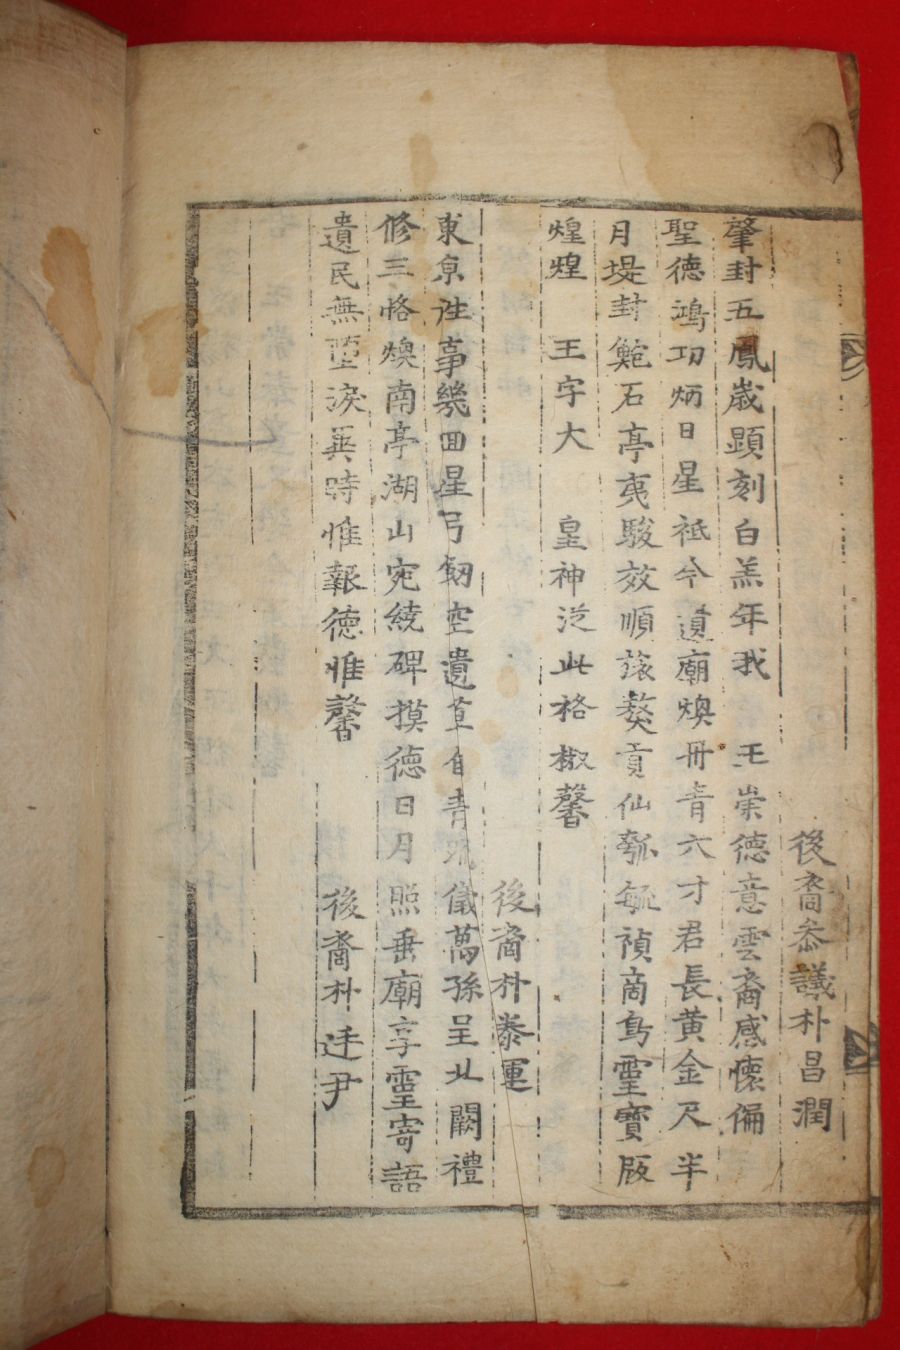 後裔叅議朴昌潤
肇封五鳳歲顯刻白羔年我　王崇德意雲裔感懷偏
聖德鴻功炳日星祗今遺廟煥冊青六才君長黃金尺半
月堤封鮑石亭夷駿效順蔉獒貢仙瓠毓禎商鳥靈寶殿
煌煌　王字大　皇神泛此格椒馨
後裔朴泰運
東京往事幾回星弓劒空遺草自青 儀萬孫呈北闕禮
修三恪煥南亭湖山宛繞碑摸德日月照垂廟享靈寄語
遺民無墮淚羹時惟報德惟馨
後裔朴廷尹